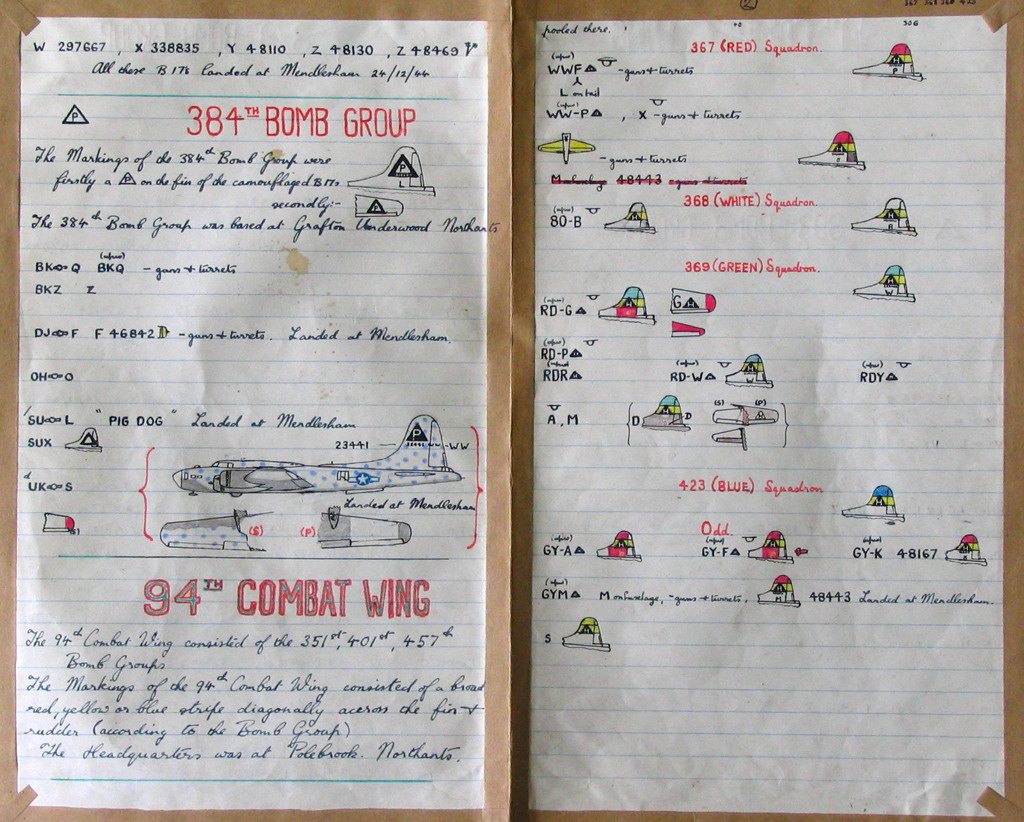 W 297667 , X 338835 , Y 48110 , Z 48130 , Z 48469
All these B17s landed at Mendlesham 24/12/44
P
384TH BOMB GROUP
The Markings of the 384th Bomb Group were
firstly a P on the fin of the camouflaged B17s
P
L
secondly:-
P
The 384th Bomb Group was based at Grafton Underwood Northants
BK Q BKQ - guns + turrets
BKZ Z
DJ F F 46842 D - guns + turrets. Landed at Mendlesham.
OH O
SU L "PIG DOG" Landed at Mendlesham
SUX
23441
P
WW
UK S
Landed at Mendlesham
(S) (P)
94TH COMBAT WING
The 94th Combat Wing consisted of the 351st, 401st, 457th
Bomb Groups
The Markings of the 94th Combat Wing consisted of a broad
red, yellow or blue stripe diagonally across the fin +
rudder (according to the Bomb Group)
The Headquarters was at Polebrook. Northants.
pooled there.
306
367 (RED) Squadron.
H
P
WWF - guns + turrets
L on tail
WW-P , X - guns + turrets
- guns + turrets
M on fuselage 48443 - guns + turrets
368 (WHITE) Squadron.
80-B
H
H
B
369 (GREEN) Squadron.
H
W
RD-G
H
G H
RD-P
RDR RD-W RDY
H
W
A, M
D H D
(S) (P)
423 (BLUE) Squadron
H
Odd
GY-A GY-F GY-K 48167
H
H
H
K
GYM M on fuselage, - guns + turrets. 48443 Landed at Mendlesham.
H
M
S
H